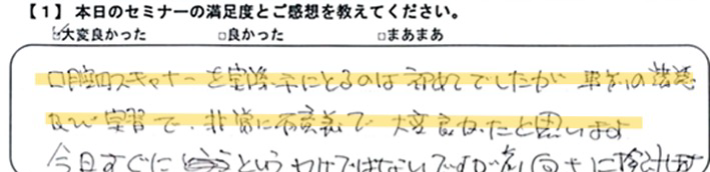 【1】本日のセミナーの満足度とご感想を教えてください。
☑大変良かった □良かった □まあまあ
口腔内スキャナーを実際手にとるのは初めてでしたが 事前の
及び実習で、非常に有意義で 大変良かったと思います
今日すぐに というわけではないですが 前向きに検討